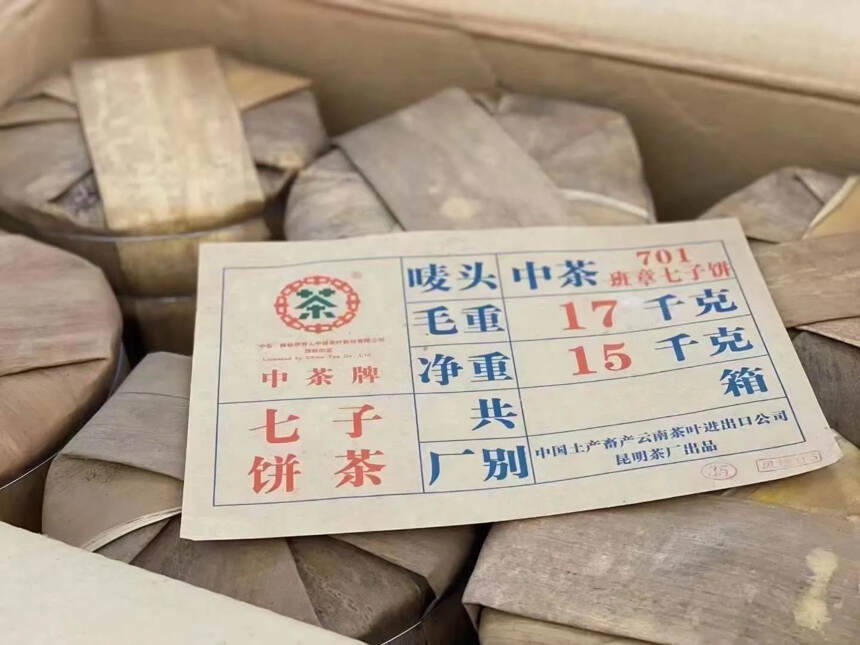 茶
中茶牌
七子
饼茶
唛头
中茶
701
班章七子饼
毛重
17 千克
净重
15 千克
共
箱
厂别
中国土产畜产云南茶叶进出口公司
昆明茶厂出品